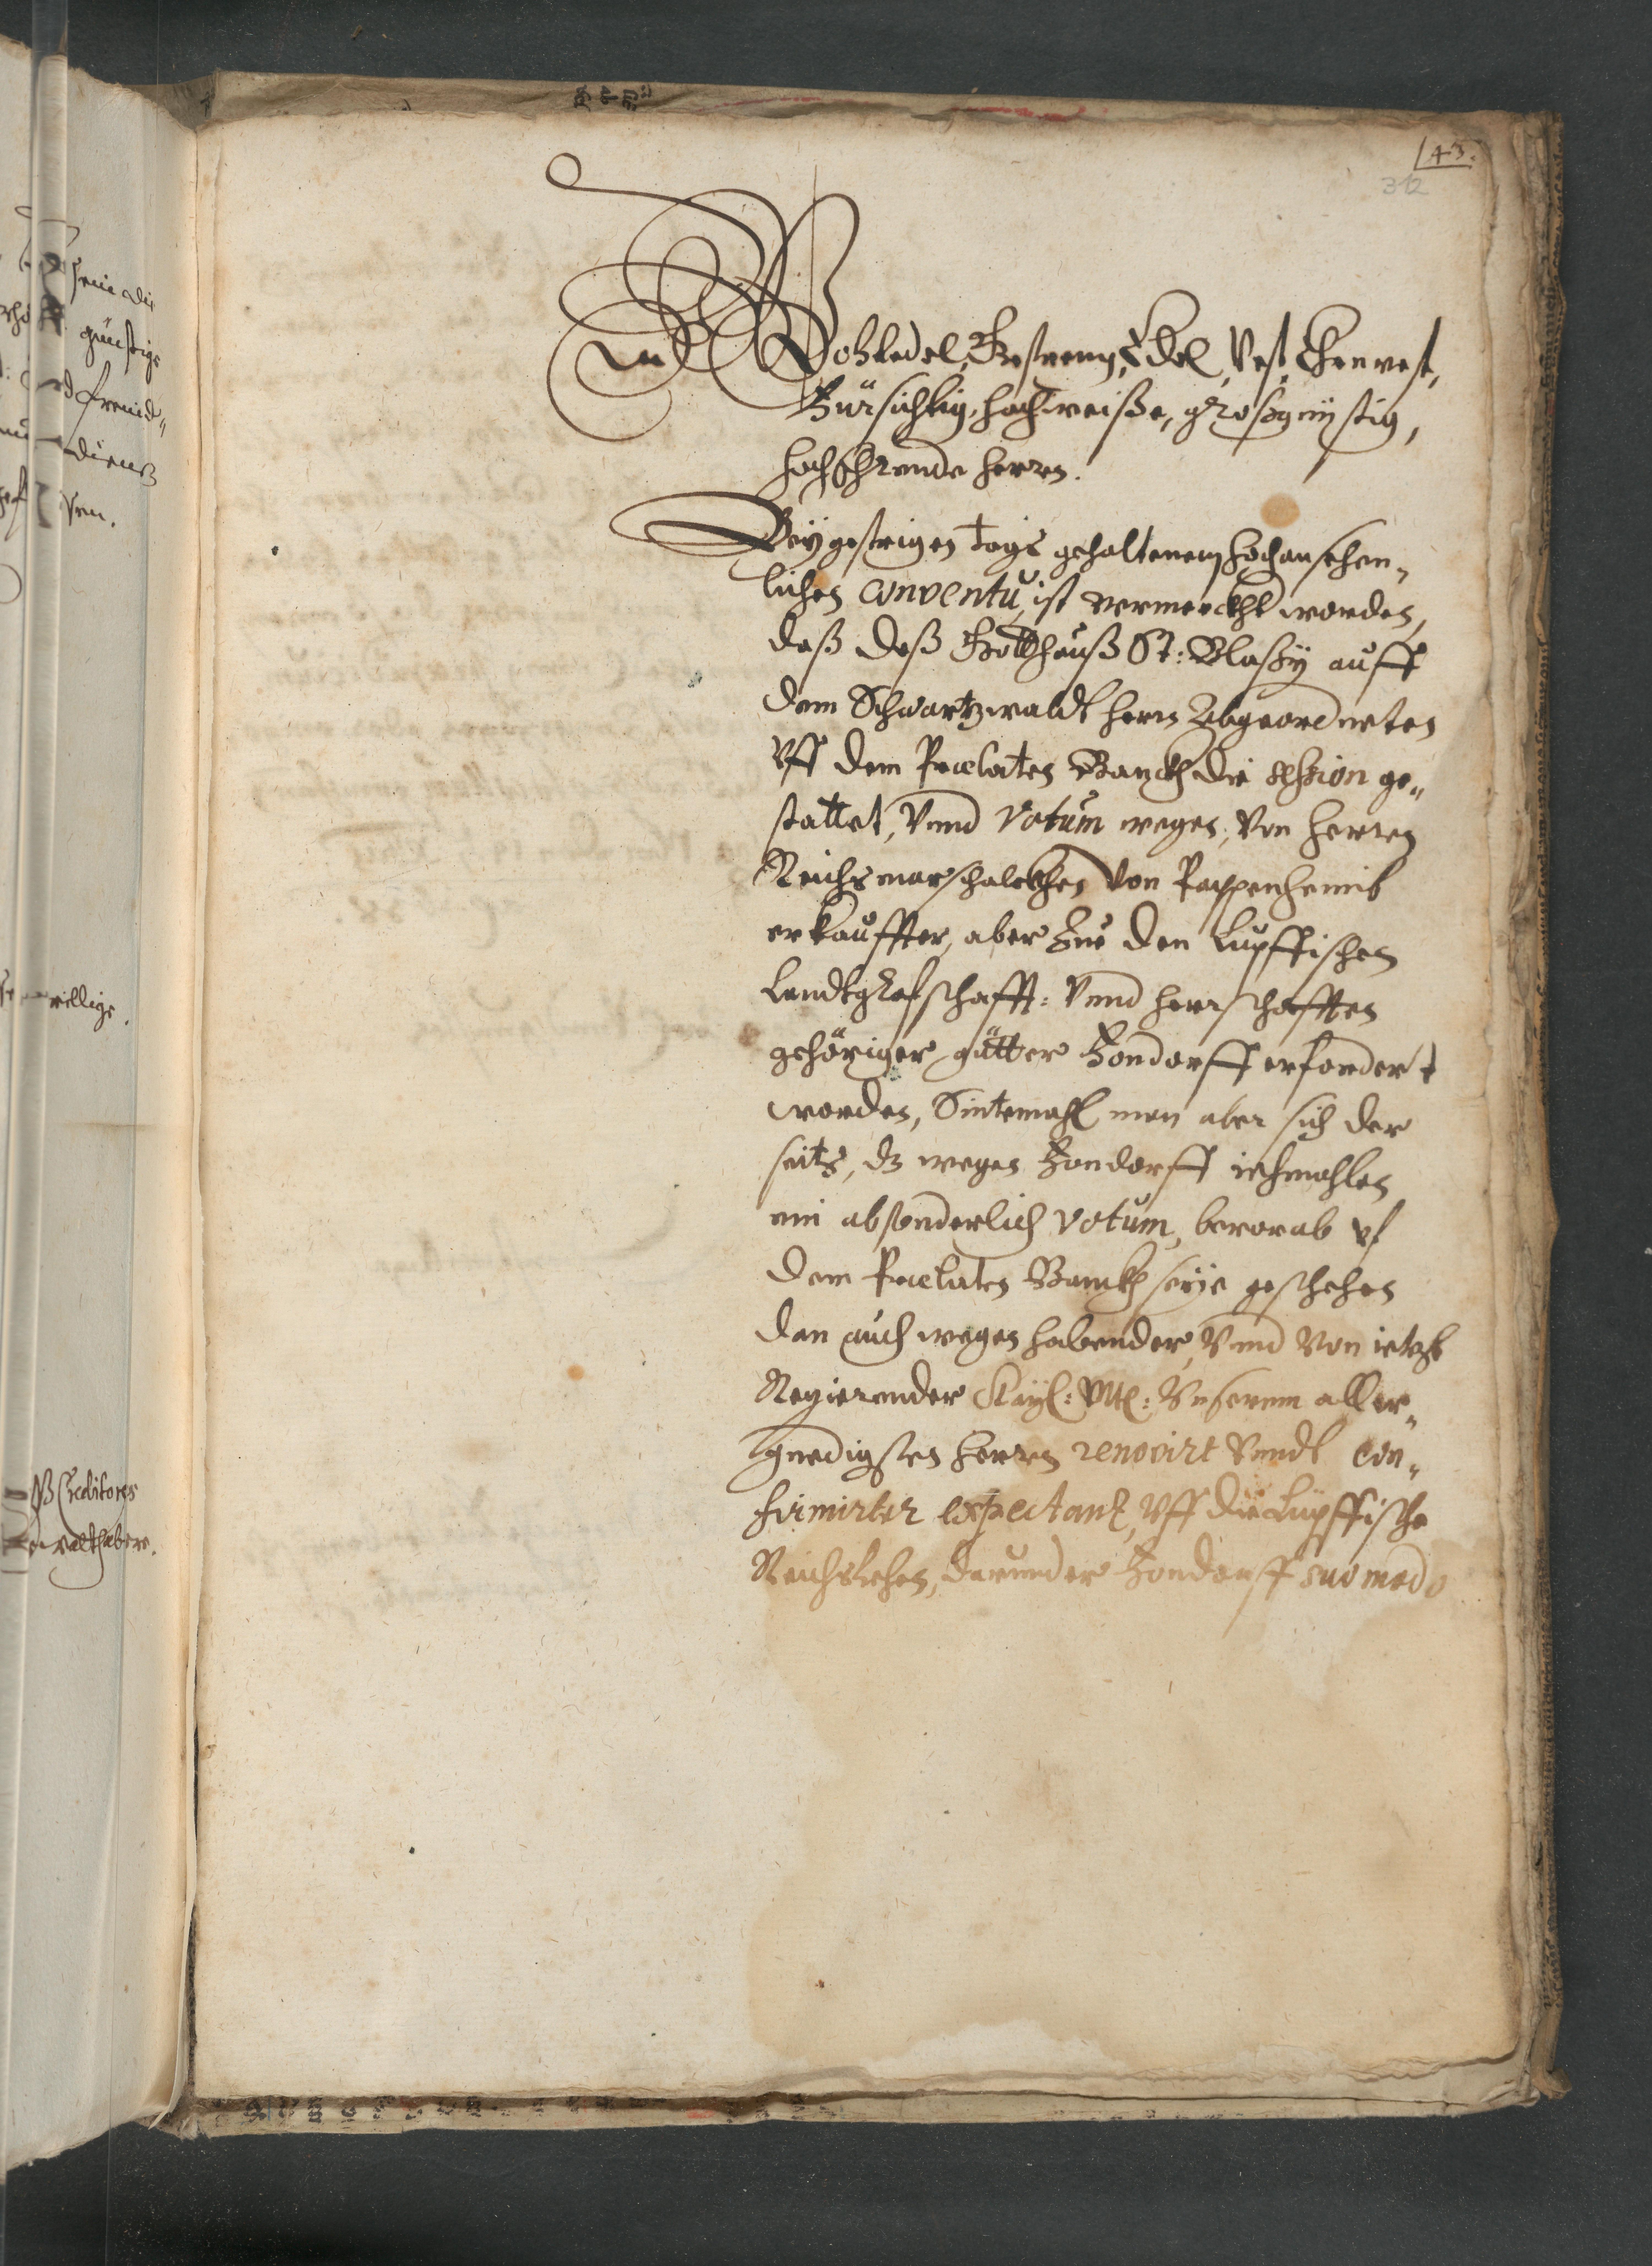 43.
312
Wohledel, Gestreng, Edel, Vest, Ehrnvest,
Fürsichtig, hochweise, großgünstig,
hochehrende herren.
Bey gestrigen tags gehaltenem hochansehen„
lichen conventu, ist vermerckht worden,
daß deß Gottshauß St: Blasÿ auff
dem Schwartzwaldt herrn Abgeordneten
vff dem Prælaten Banckh die session ge„
stattet, vnnd votum wegen, von herren
Reichsmarschalckhen von Pappenheimb
erkauffter, aber zue den Lupffischen
Landtgrafschafft: vnnd herrschafften
gehöriger gütter Bondorff erfordert
worden, Sintemahl man aber sich der
seits, dz wegen Bondorff iehmahlen
ein absonderlich votum, bevorab vf
dem Prælaten Banckh seÿe geschehen
dan auch wegen habender, vnnd von ietzt
Regierender Kayl: Mtt: Vnserem aller„
gnedigsten herren renovirt vnndt con„
firmirter expectantz, vff die Lupffische
Reichslehen, darunder Bondorff suo modo
sein die
günstige
freund„
dienst
willige.
Creditores